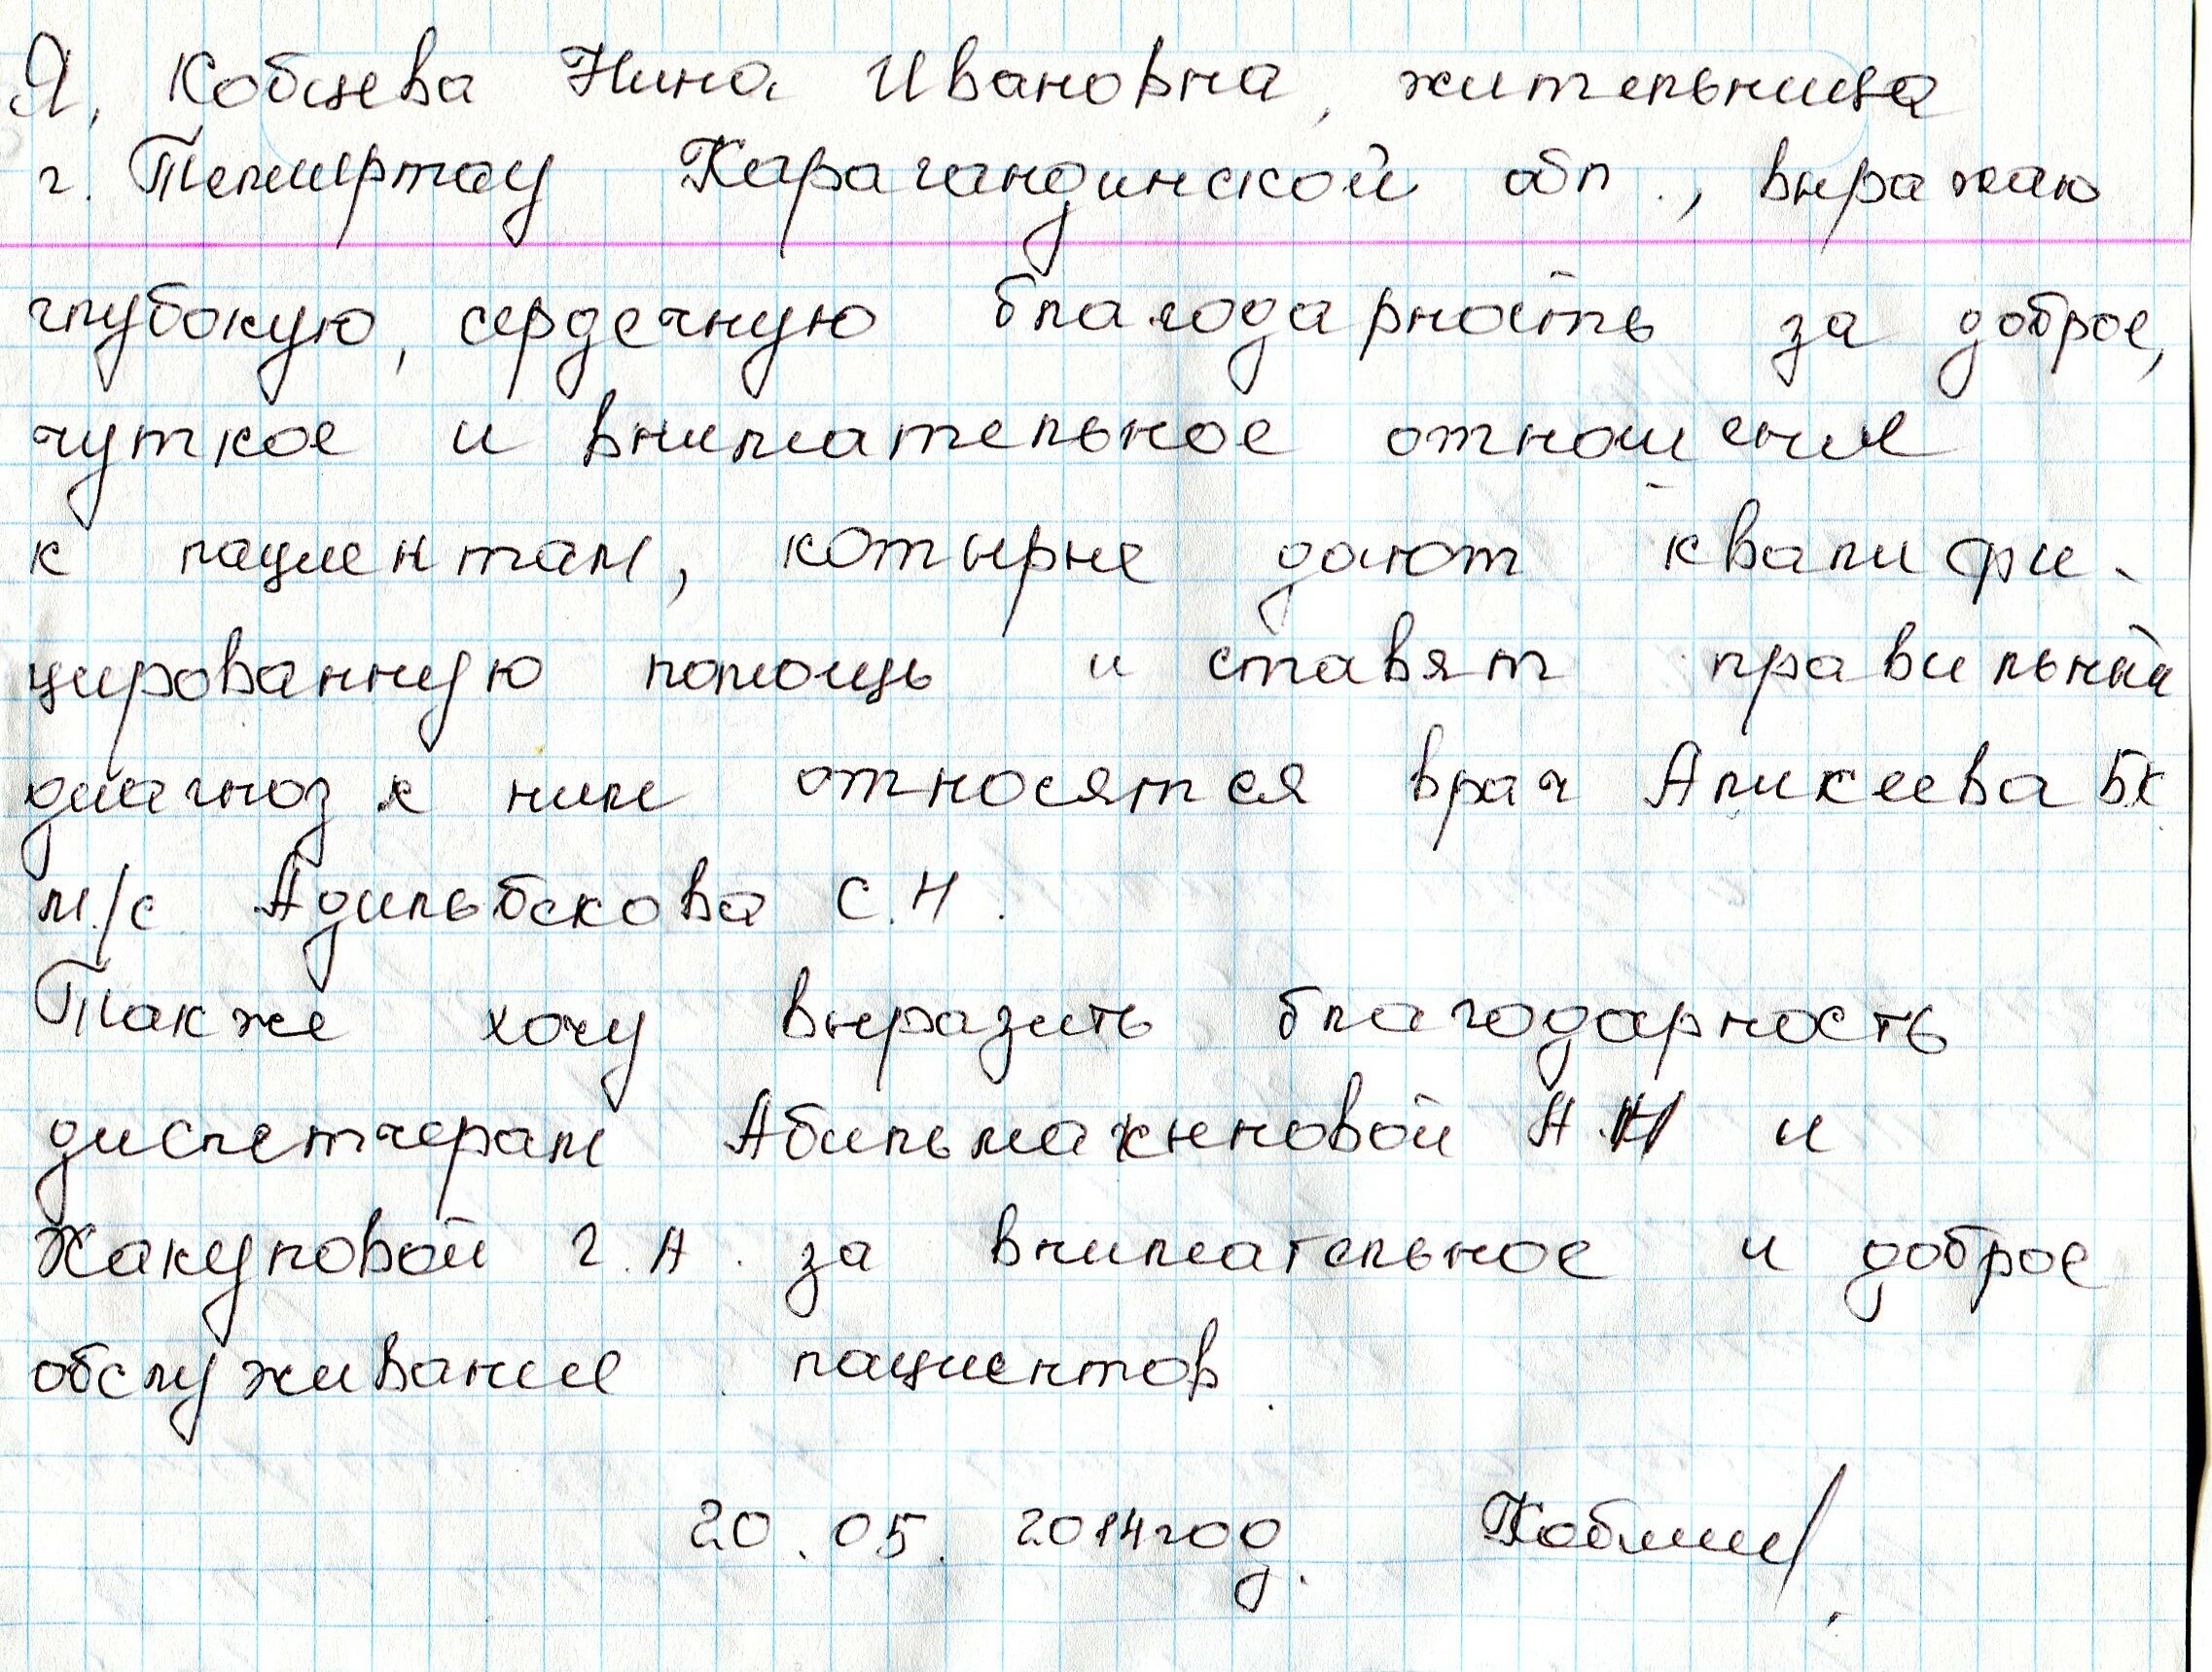 Я, Кобцева Нина Ивановна, жительница
г. Темиртау Карагандинской обл., выражаю
глубокую, сердечную благодарность за доброе,
чуткое и внимательное отношение
к пациентам, котырые дают квалифи-
цированную помощь и ставят правильный
диагноз к ним относятся врач Аликеева Б.К
м/с Адильбекова С.Н.
Также хочу выразить благодарность
диспетчерам Абильмажиновой А.Н и
Жакуповой Г.А. за внимательное и доброе
обслуживание пациентов.
20.05.2014год.